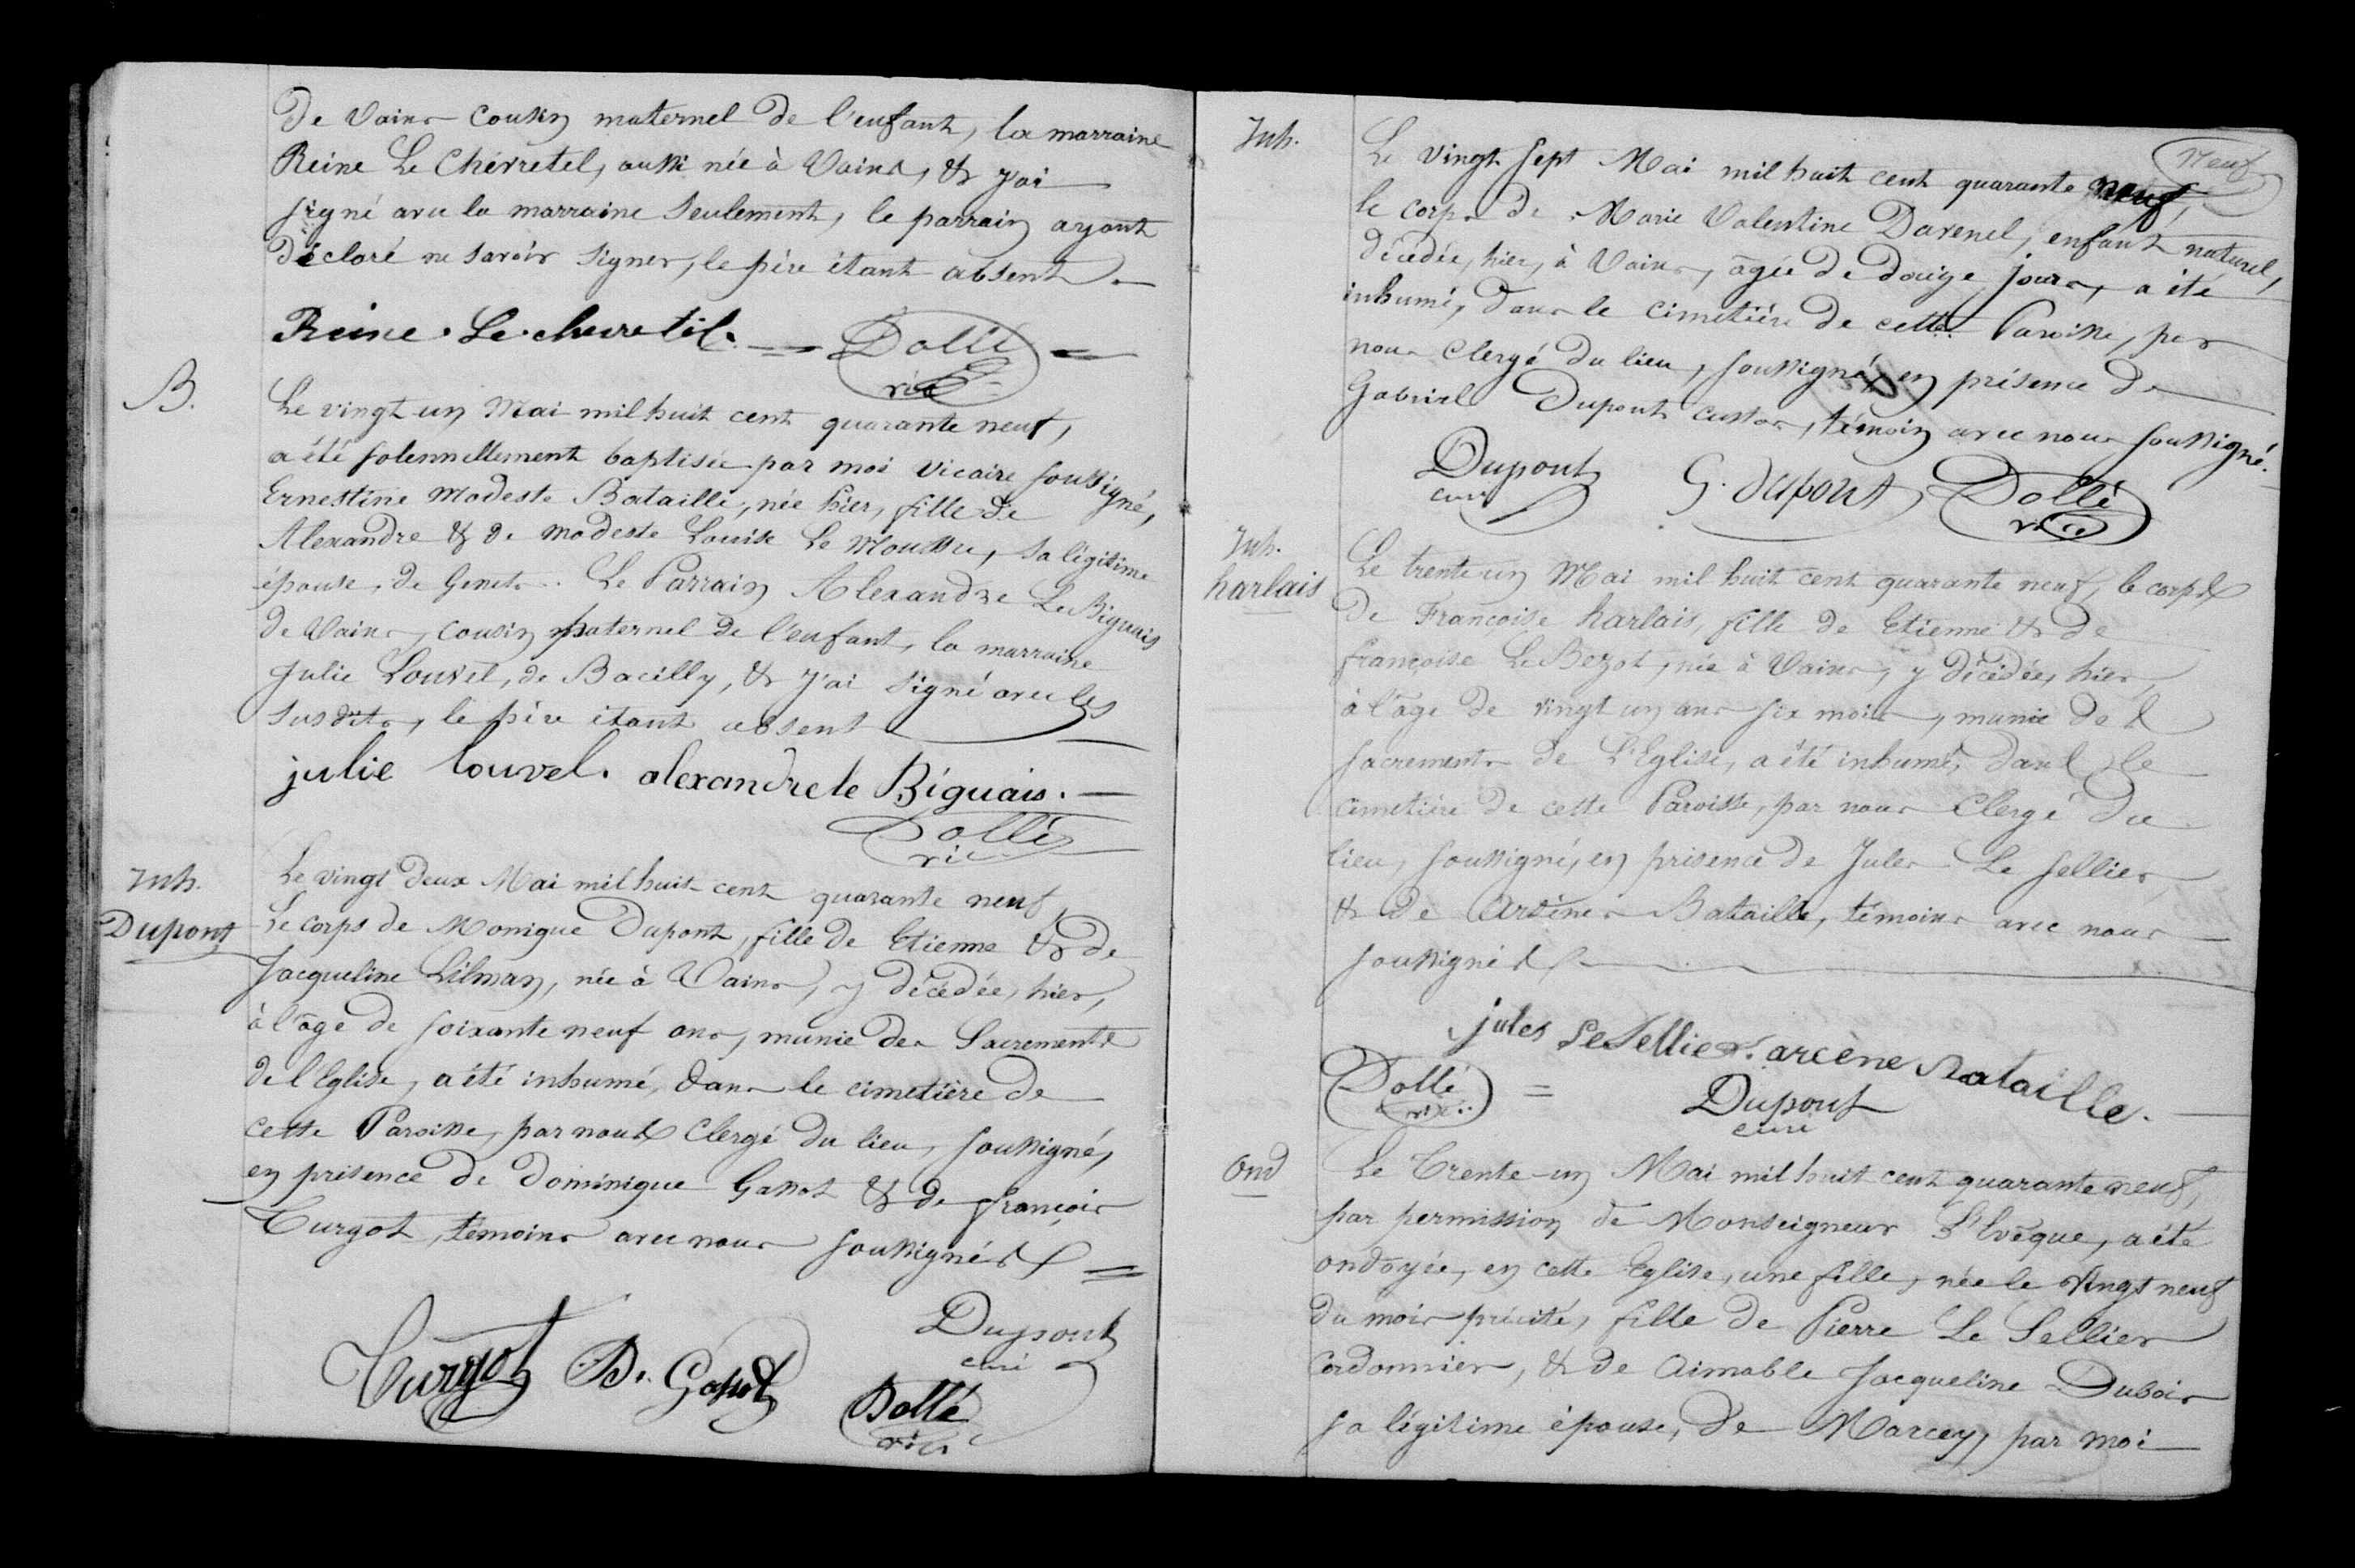 de Vains cousin maternel de l'enfant, la marraine
Reine Le Chevretel, aussi née à Vains, & j'ai
signé avec la marraine seulement, le parrain ayant
déclaré ne savoir signer, le père étant absent.
Reine. Le. chevretel. Dollé
vic
B.
Le vingt un Mai mil huit cent quarante neuf,
a été solennellement baptisée par moi vicaire soussigné,
Ernestine Modeste Bataille, née hier, fille de
Alexandre & de Modeste Louise Le Moussu, sa légitime
épouse, de Genets. Le Parrain Alexandre Le Biguais
de Vains, cousin paternel de l'enfant, la marraine
Julie Louvel, de Bacilly, & j'ai signé avec les
susdits, le père étant absent
julie louvel. alexandre le Biguais.
Dollé
vic
Inh.
Dupont
Le vingt deux Mai mil huit cent quarante neuf
Le corps de Monique Dupont, fille de Etienne & de
Jacqueline Lilman, née à Vains, y décédée, hier,
à l'âge de soixante neuf ans, munie des Sacrements
de l'Eglise, a été inhumé, dans le cimetière de
cette Paroisse, par nous Clergé du lieu, soussigné,
en présence de Dominique Gassot & de françois
Turgot, témoins avec nous soussignés
Turgot D. Gassot Dupont
curé
Dollé
vic.
Neuf
Inh.
Le vingt sept Mai mil huit cent quarante neuf,
le corps de Marie Valentine Davenel, enfant naturel,
décédée, hier, à Vains, âgée de douze jours, a été
inhumé, dans le cimetière de cette Paroisse, par
nous Clergé du lieu, soussigné, en présence de
Gabriel Dupont custos, témoin avec nous soussigné.
Dupont G. dupont Dollé
curé vic
Inh.
harlais
Le trente un Mai mil huit cent quarante neuf, le corps
de Françoise harlais, fille de Etienne & de
françoise Le Bezot, née à Vains, y décédée, hier,
à l'âge de vingt un ans six mois, munie des
sacrements de L'Eglise, a été inhumé, dans le
cimetière de cette Paroisse, par nous Clergé du
lieu, soussigné, en présence de Jules Le Sellier
& de Arsène Bataille, témoins avec nous
soussignés
jules Le Sellier. arcène Bataille.
Dollé Dupont
vic. curé
Ond
Le Trente-un Mai mil huit cent quarante neuf,
par permission de Monseigneur L'Evêque, a été
ondoyée, en cette Eglise, une fille, née le vingt neuf
du mois précité, fille de Pierre Le Sellier
cordonnier, & de Aimable Jacqueline Dubois
sa légitime épouse, de Marcey, par moi